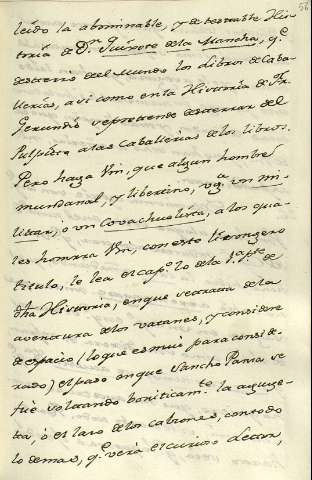 56
leído la abominable, y detestable His-
toria de Dn. Quixote de la Mancha, qe.
desterró del Mundo los libros de Caba-
llerías, así como en la Historia de Fr.
Gerundio se pretende desterrar del
Pulpito a las caballerías de los libros.
Pero haga Vm, que algun hombre
mundanal, y libertino, vga. un mi-
litar, o un Covachuelista, a los qua-
les honrra Vm, con este lisongero
titulo, le lea el capo. lo de la 1a. pte. de
dha Historia, en que se trata de la
aventura de los batanes, y considere
de espacio (lo que es mui para conside-
rado) el paso en que Sancho Panza se
fue soltando boniticamte. la aguge-
ta, o el laso de los calzones, con todo
lo demas, qe. verá el curioso Lector,